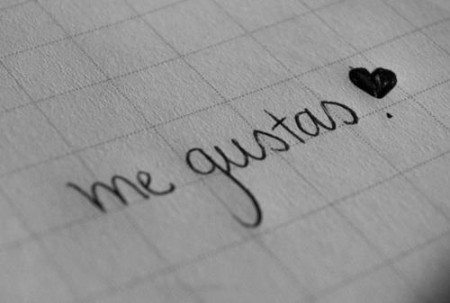 me gustas ♥.